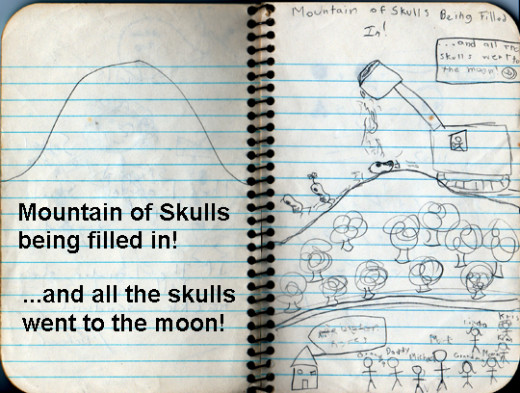 Mountain of Skulls
being filled in!
...and all the skulls
went to the moon!
Mountain of Skulls Being Filled
In!
...and all the
skulls went to
the moon!
Daddy
Michael